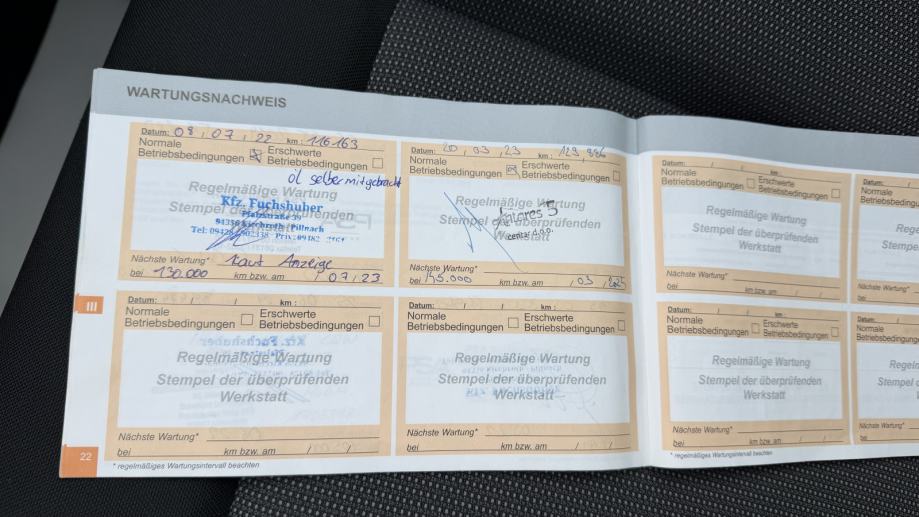 WARTUNGSNACHWEIS
Datum: 08 / 07 / 22 km: 116.163
Normale Betriebsbedingungen Erschwerte Betriebsbedingungen
öl selber mitgebracht
Regelmäßige Wartung
Stempel der überprüfenden
Kfz. Fuchshuber
Pfalzstraße
94356 Kirchroth - Pillnach
Nächste Wartung* laut Anzeige
bei 130.000 km bzw. am / 07 / 23
Datum: 20 / 03 / 23 km:
Normale Betriebsbedingungen Erschwerte Betriebsbedingungen
Regelmäßige Wartung
Stempel der überprüfenden
Antares 5
centar d.o.o.
Nächste Wartung*
bei 145.000 km bzw. am / 03 /
Datum: / /
Normale Betriebsbedingungen Erschwerte Betriebsbedingungen
Regelmäßige Wartung
Stempel der überprüfenden
Werkstatt
Nächste Wartung*
bei km bzw. am / /
III
Datum: / / km:
Normale Betriebsbedingungen Erschwerte Betriebsbedingungen
Regelmäßige Wartung
Stempel der überprüfenden
Werkstatt
Nächste Wartung*
bei km bzw. am / /
Datum: / / km:
Normale Betriebsbedingungen Erschwerte Betriebsbedingungen
Regelmäßige Wartung
Stempel der überprüfenden
Werkstatt
Nächste Wartung*
bei km bzw. am / /
Datum: / / km:
Normale Betriebsbedingungen Erschwerte Betriebsbedingungen
Regelmäßige Wartung
Stempel der überprüfenden
Werkstatt
Nächste Wartung*
bei km bzw. am / /
22
* regelmäßiges Wartungsintervall beachten
* regelmäßiges Wartungsintervall beachten